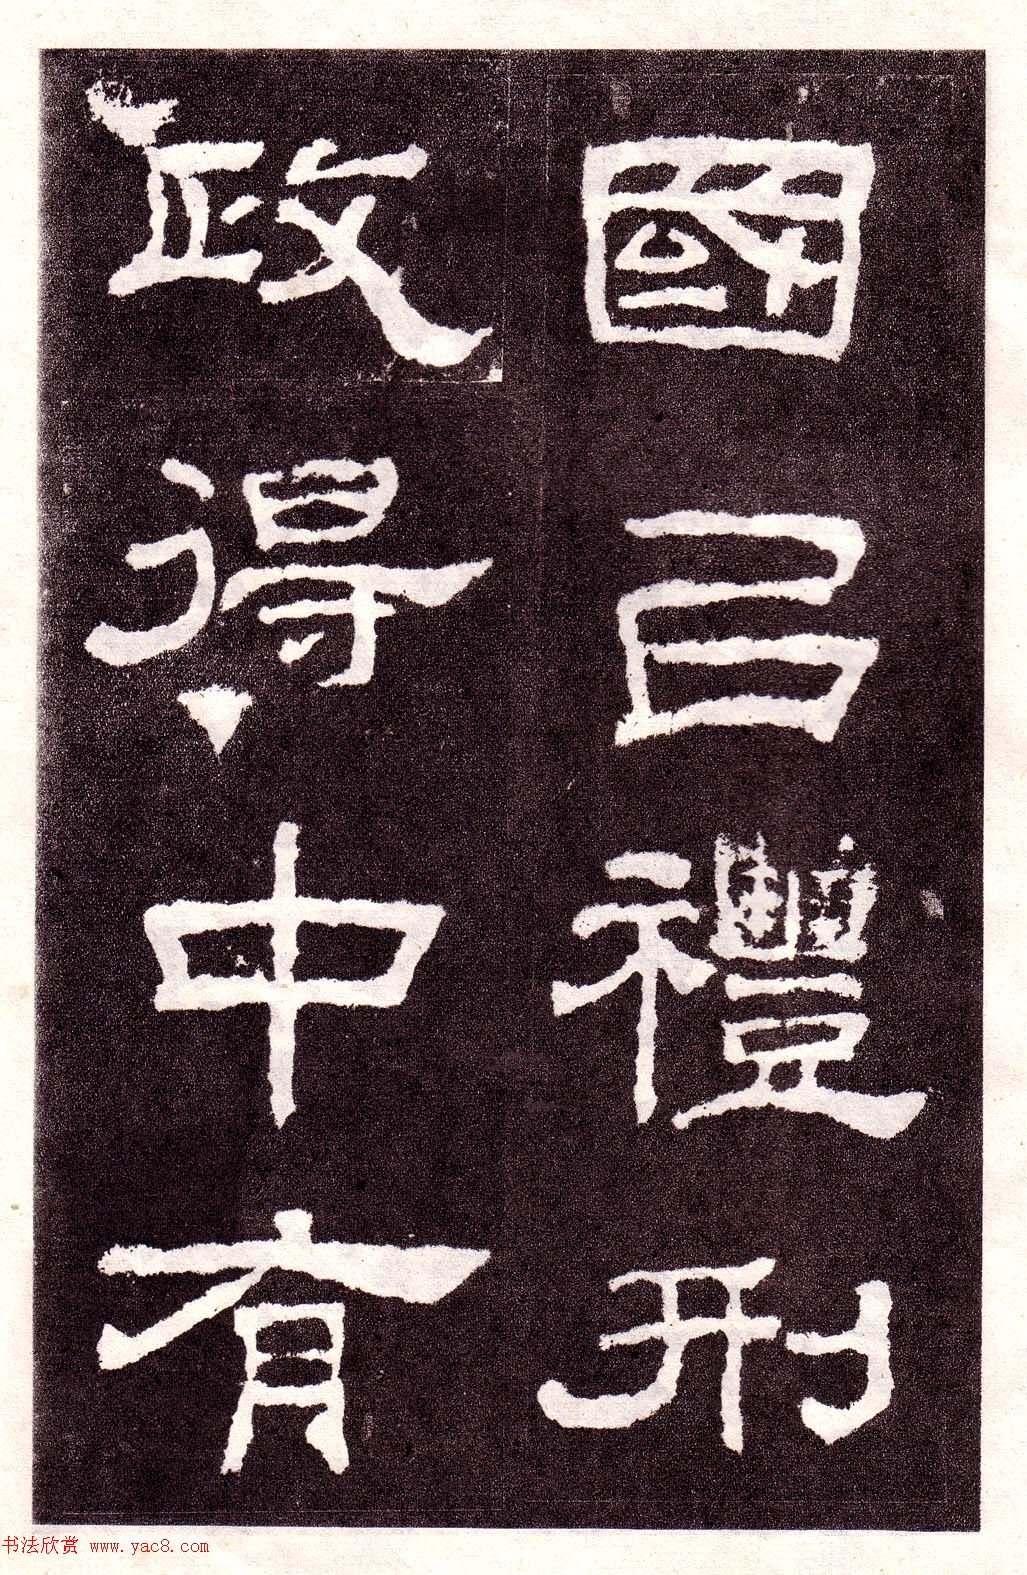 國以禮刑
政得中有
书法欣赏 www.yac8.com